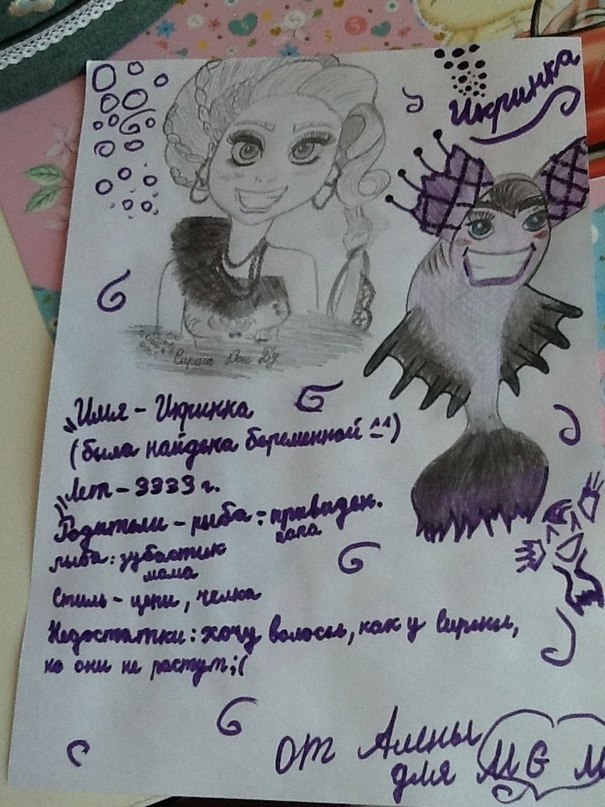 Икринка
Сирена Фон Бу
Имя - Икринка
(была найдена беременной ^^)
Лет - 3333 г.
Родители - рыба: привиден.
папа
рыба: зубастик
мама
Стиль - цепи, челка
Недостатки: хочу волосы, как у Сирены,
но они не растут ;(
от Алены
для MGM